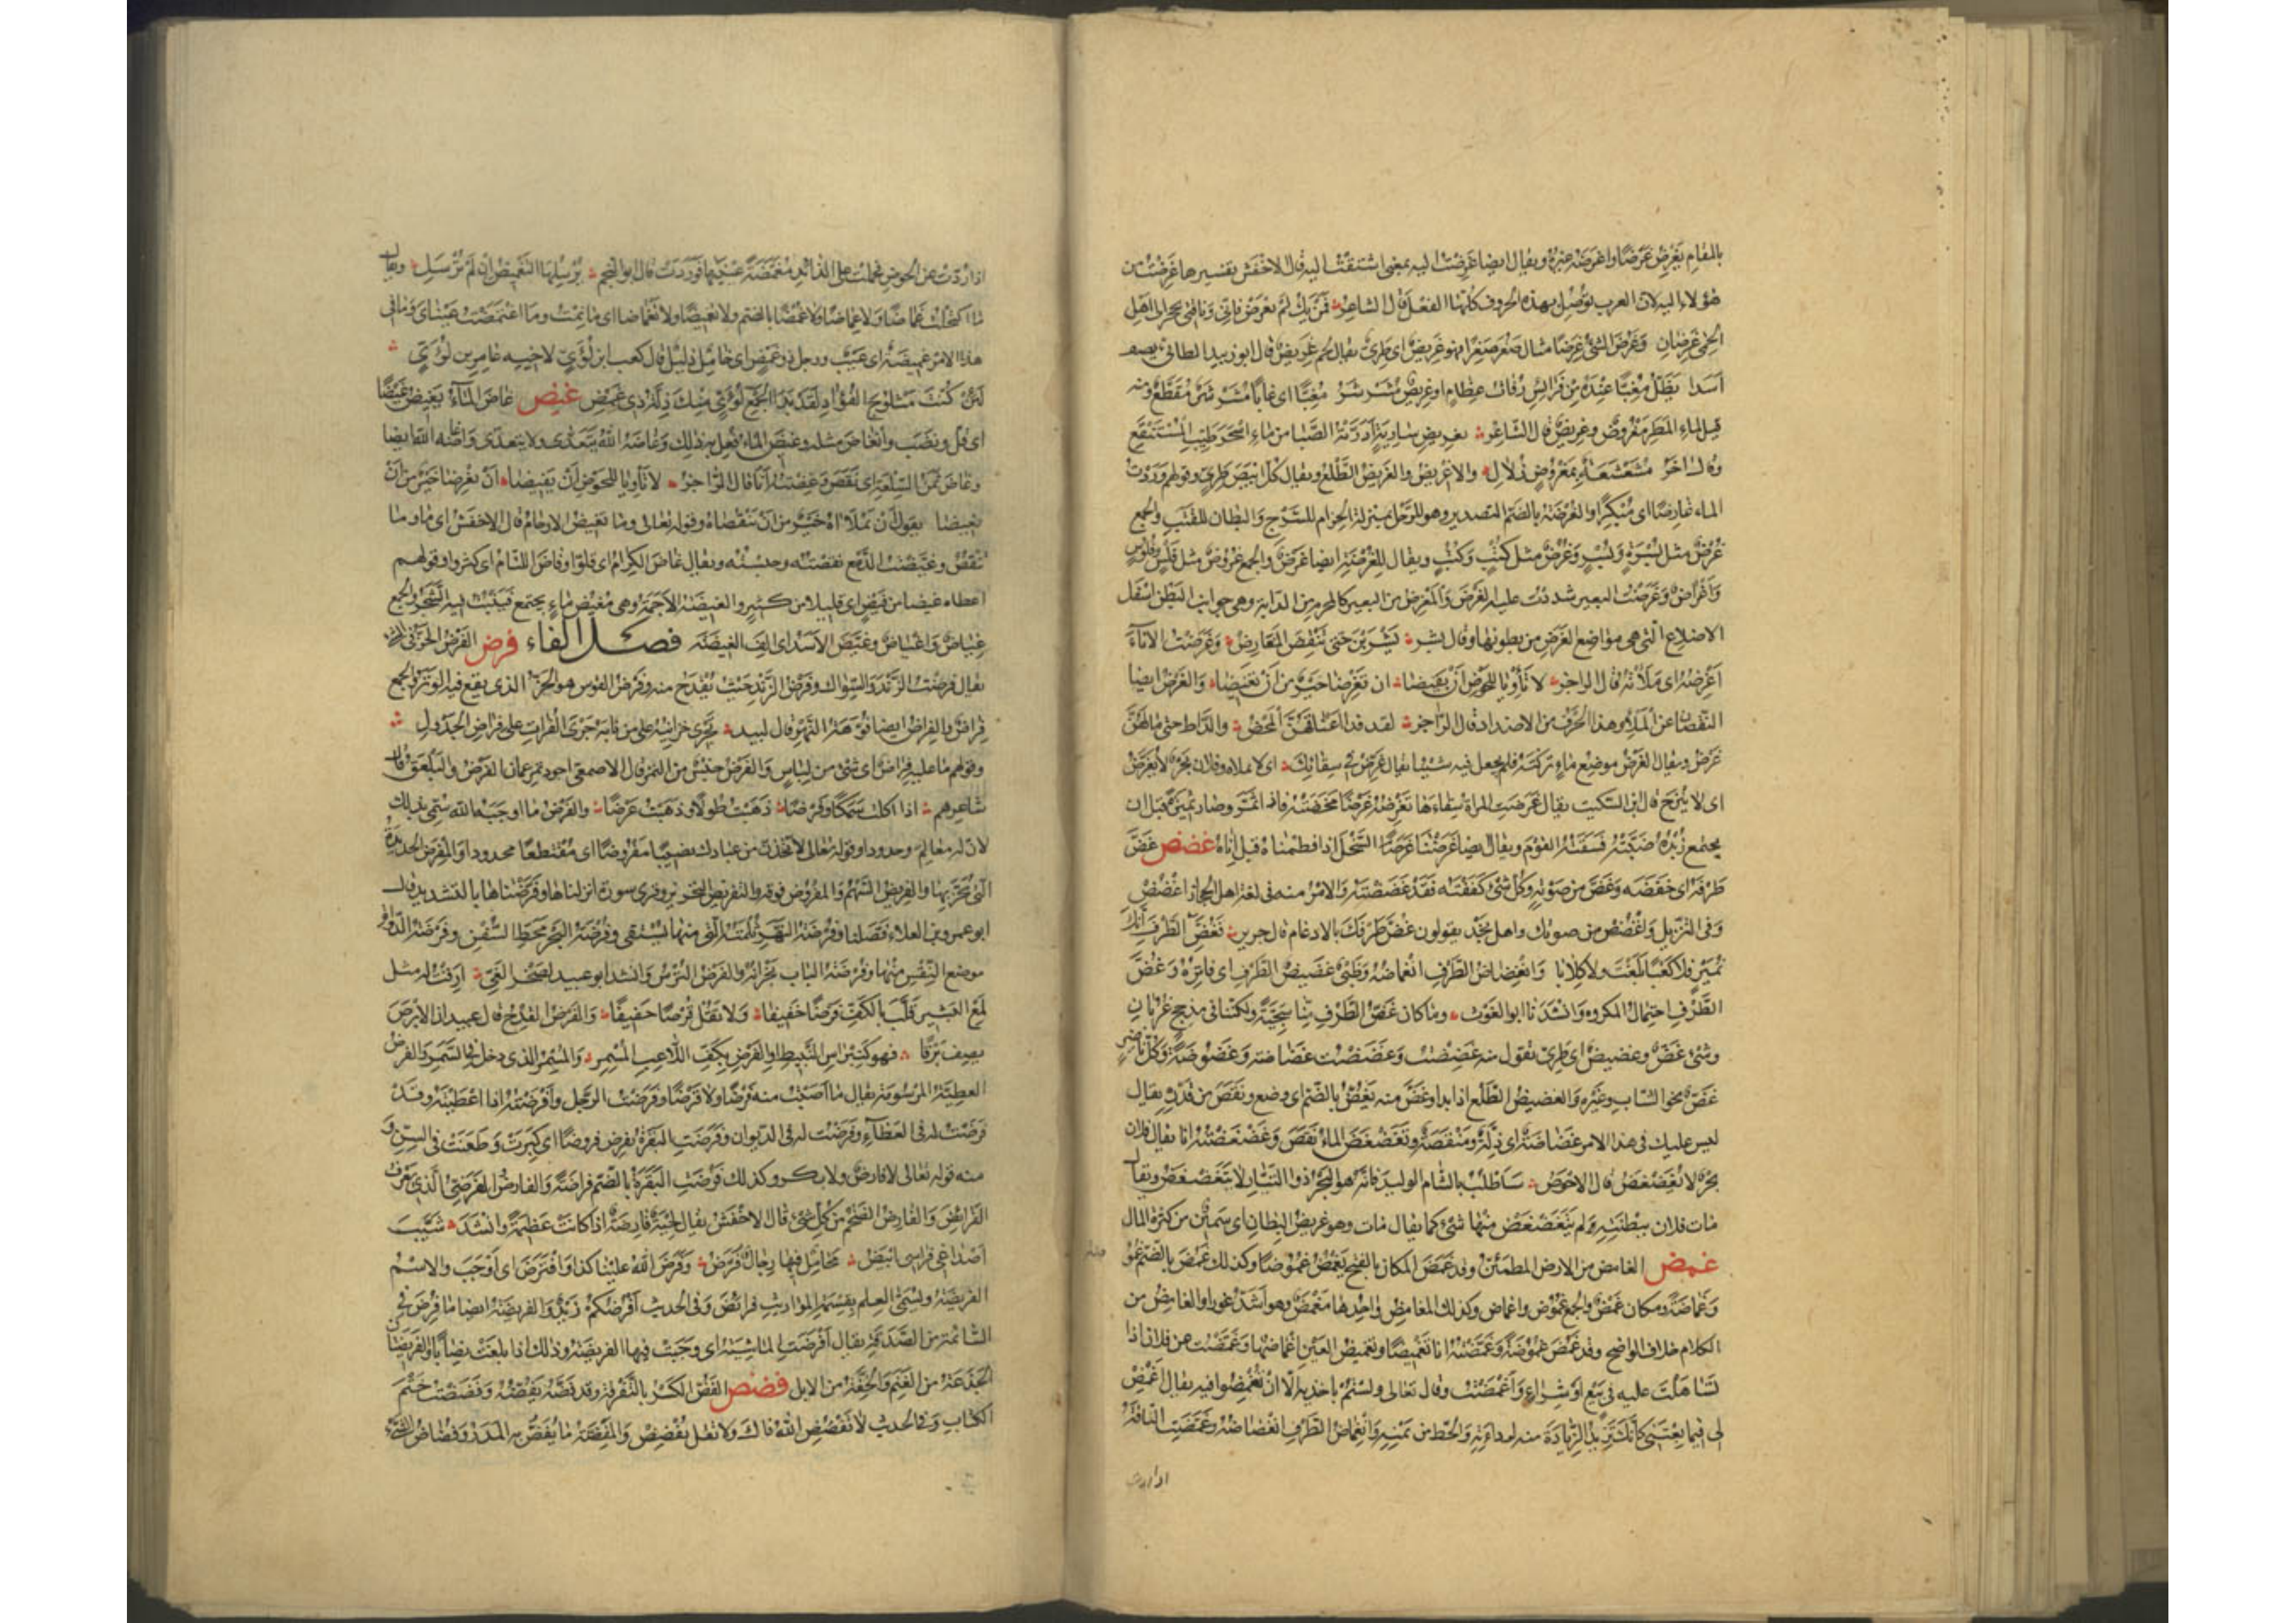 بالمقام يغرض غرضا واغرضه غيره ويقال ايضا غرضت اليه بمعنى اشتقت اليه قال الاخفش تفسيرها غرضت من
هؤلاء اليه لان العرب توصل بهذه الحروف كلها الفعل قال الشاعر فمن يك لم يغرض فاني وناقتي بحجر الى اهل
الحمى غرضان وغرض الشئ غرضا مثال صغر صغرا فهو غريض اي طري يقال لحم غريض قال ابو زبيد الطائي يصف
اسدا يظل مغبا عنده من فرائس رفات عظام او غريض مشرشر مغبا اي غابا مشرشر اي مقطع ومنه
قيل لماء المطر مغروض وغريض قال الشاعر بغريض سارية ادرته الصبا من ماء اسجر طيب المستنقع
وقال اخر مشعشعة بمغروض زلال والاغريض والغريض الطلع ويقال كل ابيض طري وقولهم وردت
الماء غارضا اي مبكرا والغرضة بالضم التصدير وهو للرحل بمنزلة الحزام للسرج والبطان للقتب والجمع
غرض مثل بسرة وبسر وغرض مثل كتب وكتب ويقال للغرضة ايضا غرض والجمع غروض مثل فلس وفلوس
واغراض وغرضت البعير شددت عليه الغرض والمغرض من البعير كالمحزم من الدابة وهي جوانب البطن اسفل
الاضلاع التي هي مواضع الغرض من بطونها وقال يشربن حتى تنقض المغارض وغرضت الاناء
اغرضه اي ملأته قال الراجز لا تأويا للحوض ان يفيضا ان تغرضا خير من ان تغيضا والغرض ايضا
النقصان عن الملء وهذا الحرف من الاضداد قال الراجز لقد فدا اعناقهن المحض والدأظ حتى ما لهن
غرض ويقال الغرض موضع ماء تركته فلم يجعل فيه شيئا يقال غرض في سقائك اي لا تملأه وفلان بحر لا يغرض
اي لا ينزح قال ابن السكيت يقال غرضت المراة سقاءها تغرضه غرضا مخضته فاذا ثمر وصار ثميرة قبل ان
يجتمع زبده صبته فسقته القوم ويقال ايضا غرضنا غرضا السخل اذا فطمناه قبل اناه غضض غض
طرفه اي خفضه وغض من صوته وكل شئ كففته فقد غضضته والامر منه في لغة اهل الحجاز اغضض
وفي التنزيل واغضض من صوتك واهل نجد يقولون غض طرفك بالادغام قال جرير فغض الطرف انك
نمير فلا كعبا بلغت ولا كلابا وانغضاض الطرف انغماضه وظبي غضيض الطرف اي فاتره وغض
الطرف احتمال المكروه وانشدنا ابو الغوث وما كان غض الطرف منا سجية ولكننا في مذحج غربان
وشئ غض وغضيض اي طري تقول منه غضضت وغضضت غضاضة وغضوضة وكل ناضر
غض نحو الشاب وغيره والغضيض الطلع اذا بدا وغض منه يغض بالضم اي وضع ونقص من قدره يقال
ليس عليك في هذا الامر غضاضة اي ذلة ومنقصة وتغضغض الماء نقص وغضغضته انا يقال فلان
بحر لا يغضغض قال الاحوص ساطلب بالشام الوليد فانه هو البحر ذو التيار لا يتغضغض ويقال
مات فلان ببطنته ولم يتغضغض منها شئ كما يقال مات وهو عريض البطان اي سمين من كثرة المال
غمض الغامض من الارض المطمئن وقد غمض المكان بالفتح يغمض غموضا وكذلك غمض بالضم غموضة
وغماضة ومكان غمض والجمع غموض واغماض وكذلك المغامض واحدها مغمض وهو اشد غورا والغامض من
الكلام خلاف الواضح وقد غمض غموضة وغمضته انا تغميضا وتغميض العين اغماضها وغمضت عن فلان اذا
تساهلت عليه في بيع او شراء واغمضت وقال تعالى ولستم باخذيه الا ان تغمضوا فيه يقال اغمض
لي فيما بعتني كانك تريد الزيادة منه لرداءته والحط من ثمنه وانغماض الطرف انغضاضه وغمضت الناقة
اذا ردت
اذا ردت عن الحوض فحملت على الذائد مغمضة عينيها فوردت قال ابو النجم يرسلها التغميض ان لم ترسل ويقال
ما اكتحلت غماضا ولا غماضا ولا غمضا بالضم ولا تغميضا ولا تغماضا اي ما نمت وما اغتمضت عيناي وما في
هذا الامر غميضة اي عيب ورجل ذو غمض اي خامل ذليل قال كعب ابن لؤي لاخيه عامر بن لؤي
لئن كنت مثلوج الفؤاد لقد بدا لجمع لؤي منك ذلة ذي غمض غيض غاض الماء يغيض غيضا
اي قل ونضب وانغاض مثله وغيض الماء فعل به ذلك وغاضه الله يتعدى ولا يتعدى واغاضه الله ايضا
وغاض ثمن السلعة اي نقص وغضته انا قال الراجز لا تأويا للحوض ان يفيضا ان تغرضا خير من ان
تغيضا يقول ان تملآه خير من ان تنقصاه وقوله تعالى وما تغيض الارحام قال الاخفش اي وما
تنقص وغيضت الدمع نقصته وحبسته ويقال غاض الكرام اي قلوا وفاض اللئام اي كثروا وقولهم
اعطاه غيضا من فيض اي قليلا من كثير والغيضة الاجمة وهي مغيض ماء يجتمع فينبت فيه الشجر والجمع
غياض واغياض وغيض الاسد اي الف الغيضة فصل الفاء فرض الفرض الحز في الشئ
يقال فرضت الزند والسواك وفرض الزند حيث يقدح منه وفرض القوس هو الحز الذي يقع فيه الوتر والجمع
فراض والفراض ايضا فوهة النهر قال لبيد تجري خزائنه على من نابه جري الفرات على فراض الجدول
وقولهم ما عليه فراض اي شئ من لباس والفرض جنس من التمر قال الاصمعي اجود تمر عمان الفرض والبلعق قال
شاعرهم اذا اكلت سمكا وفرضا ذهبت طولا وذهبت عرضا والفرض ما اوجبه الله سمي بذلك
لان له معالم وحدودا وقوله تعالى لاتخذن من عبادك نصيبا مفروضا اي مقتطعا محدودا والمفرض الحديدة
التي يحز بها والفريض السهم والمفروض فوقه والتفريض التحزيز وقرئ سورة انزلناها وفرضناها بالتشديد قال
ابو عمرو بن العلاء فصلنا وفرضة النهر ثلمته التي منها يستقى وفرضة البحر محط السفن وفرضة الدواة
موضع النقس منها وفرضة الباب نجرانه والفرض الترس وانشد ابو عبيد لصخر الغي ارقت له مثل
لمع البشير قلب بالكف فرضا خفيفا ولا تقل قرصا خفيفا والفرض القدح قال عبيد ابن الابرص
يصف برقا فهو كنبراس النبيط او الفرض بكف اللاعب المسمر والمسمر الذي دخل في السمر والفرض
العطية المرسومة يقال ما اصبت منه فرضا ولا قرضا وفرضت الرجل وافرضته اذا اعطيته وقد
فرضت له في العطاء وفرضت له في الديوان وفرضت البقرة تفرض فروضا اي كبرت وطعنت في السن و
منه قوله تعالى لا فارض ولا بكر وكذلك فرضت البقرة بالضم فراضة والفارض الفرضي الذي يعرف
الفرائض والفارض الضخم من كل شئ قال الاخفش يقال لحية فارضة اذا كانت عظيمة وانشد شيب
اصداغي فراسي ابيض محامل فيها رجال فرض وفرض الله علينا كذا وافترض اي اوجب والاسم
الفريضة ويسمى العلم بقسمة المواريث فرائض وفي الحديث افرضكم زيد والفريضة ايضا ما فرض في
السائمة من الصدقة يقال افرضت الماشية اي وجبت فيها الفريضة وذلك اذا بلغت نصابا والفريضتان
الجذعة من الغنم والحقة من الابل فضض الفض الكسر بالتفرقة وقد فضه يفضه وفضضت ختم
الكتاب وفي الحديث لا يفضض الله فاك ولا تقل يفضض والمفضة ما يفض به المدر وفضاض الشئ